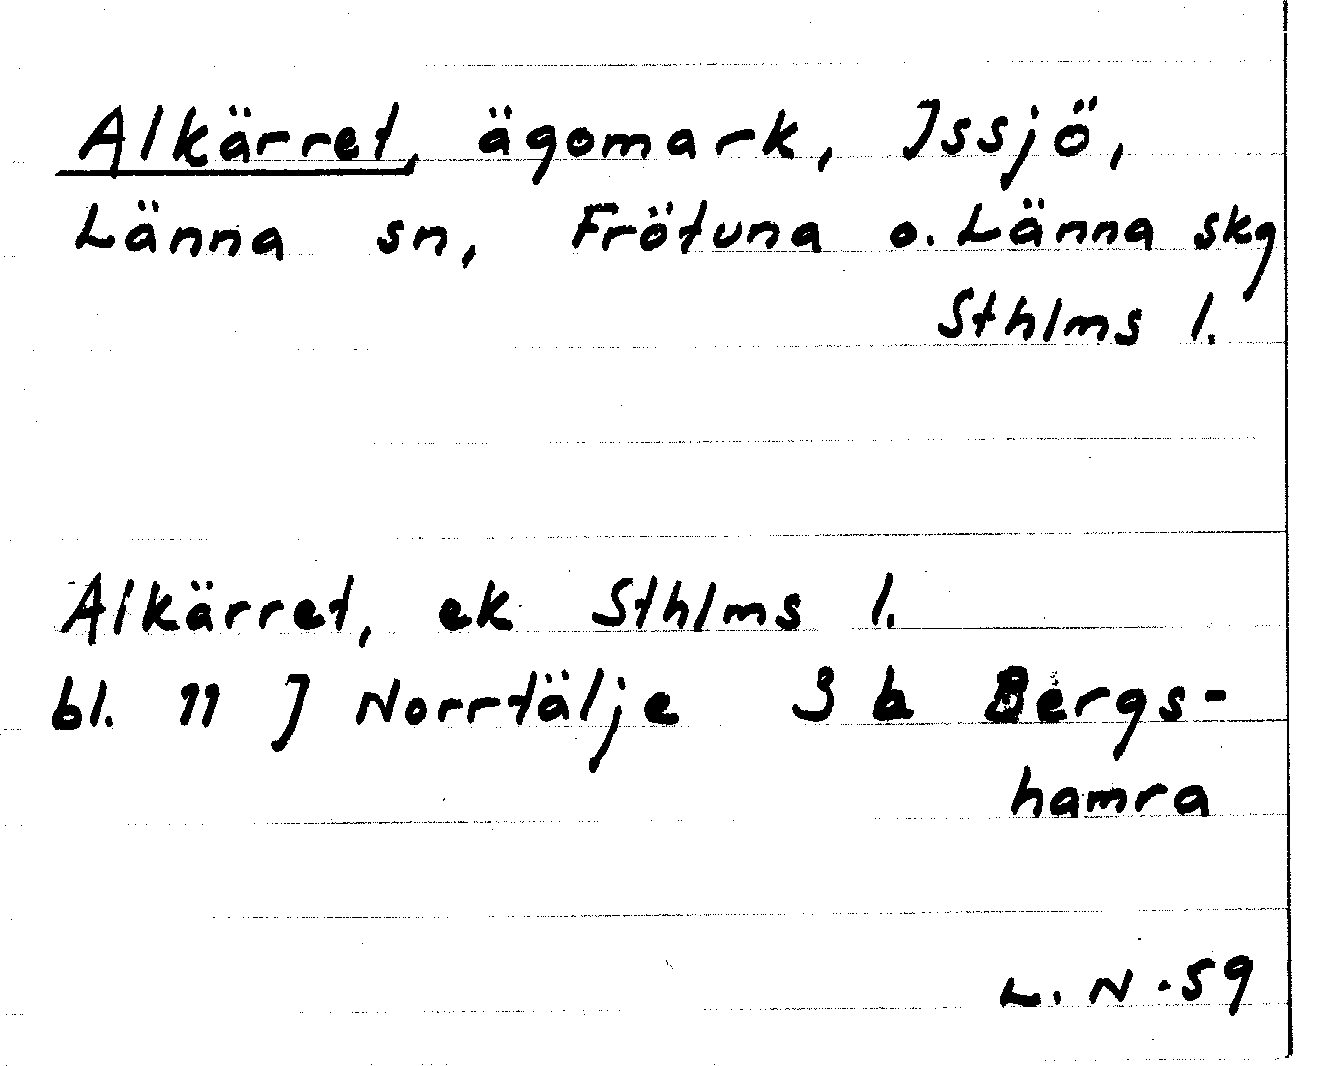 Alkärret, ägomark, Issjö,
Länna sn, Frötuna o. Länna skg
Sthlms l.
Alkärret, ek Sthlms l.
bl. 11 J Norrtälje 3 b Bergs-
hamra
L. N. 59